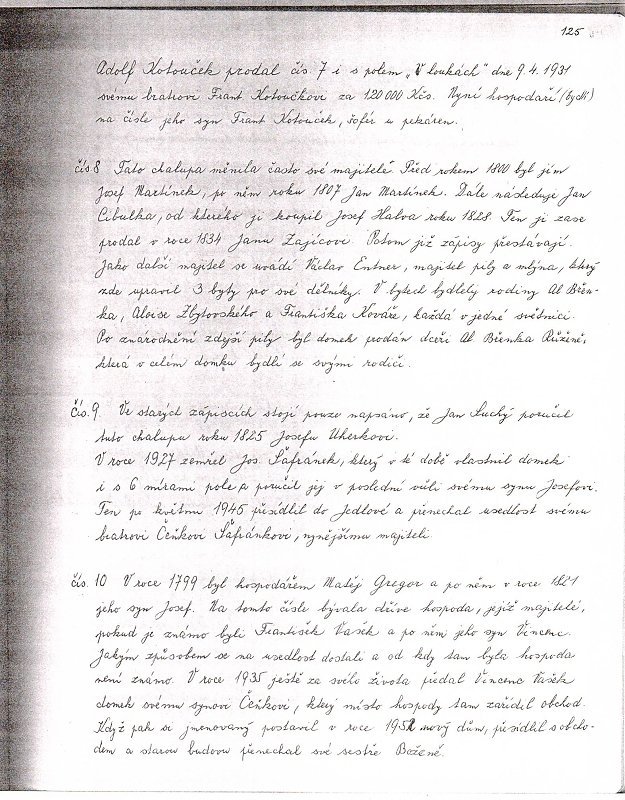 125
Adolf Kotouček prodal čís 7 i s polem „V loukách" dne 9. 4. 1931
svému bratrovi Frant Kotoučkovi za 120 000 Kčs. Nyní hospodaří (bydlí)
na čísle jeho syn Frant Kotouček, šofér u pekáren.
čís 8 Tato chalupa měnila často své majitelé Před rokem 1800 byl jím
Josef Martínek, po něm roku 1807 Jan Martínek. Dále následuje Jan
Cibulka, od kterého ji koupil Josef Halva roku 1828 Ten ji zase
prodal v roce 1834 Janu Zajícovi. Potom již zápisy přestávají.
Jako další majitel se uvádí Václav Entner, majitel pily a mlýna, který
zde upravil 3 byty pro své dělníky. V bytech bydlely rodiny Al Břen-
ka, Aloise Zbytovského a Františka Kováře, každá v jedné světnici.
Po znárodnění zdejší pily byl domek prodán dceři Al Břenka Růženě,
která v celém domku bydlí se svými rodiči.
čís. 9. Ve starých zápiscích stojí pouze napsáno, že Jan Suchý poručil
tuto chalupu roku 1825 Josefu Uherkovi.
V roce 1927 zemřel Jos. Šafránek, který v té době vlastnil domek
i s 6 mírami pole a poručil jej v poslední vůli svému synu Josefovi.
Ten po květnu 1945 přesídlil do Jedlové a přenechal usedlost svému
bratrovi Čeňkovi Šafránkovi, nynějšímu majiteli
čís. 10 V roce 1799 byl hospodářem Matěj Gregor a po něm v roce 1821
jeho syn Josef. Na tomto čísle bývala dříve hospoda, jejíž majitelé,
pokud je známo byli František Vašek a po něm jeho syn Vincenc.
Jakým způsobem se na usedlost dostali a od kdy tam byla hospoda
není známo. V roce 1935 ještě za svého života předal Vincenc Vašek
domek svému synovi Čeňkovi, který místo hospody tam zařídil obchod.
Když pak si jmenovaný postavil v roce nový dům, přesídlil s obcho-
dem a starou budovu přenechal své sestře Boženě.